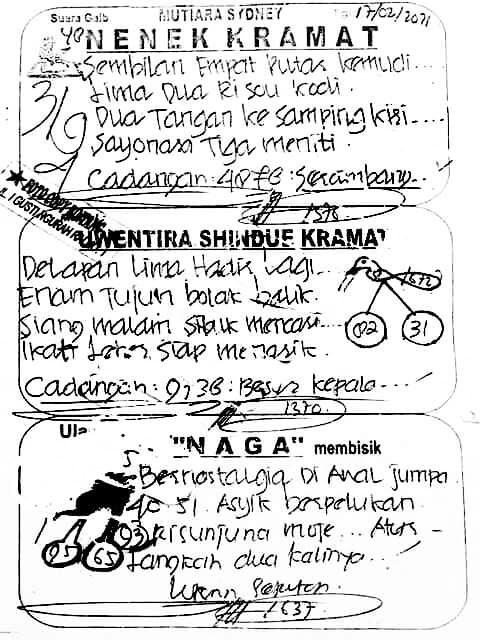 Suara Gaib MUTIARA SYDNEY 17/02/2021
NENEK KRAMAT
Sembilan Empat Putar Kemudi....
Lima Dua Risau Kodi.
Dua Tangan ke samping kisi....
Sayonara Tiga meniti.
Cadangan: 4078: Serambang...
1378
UWENTIRA SHINDUE KRAMAT
Delapan Lima Hadir Lagi...
1672
Enam Tujuh bolak balik.
Siang malam Sibuk mencari...
02 31
Ikat Siap menarik.
Cadangan: 0,38: Besar kepala...
1370
"NAGA" membisik
5
Bernostalgia Di Anal jumpa
40 51. Asyik berpelukan
1 93
05 65
Langkah dua kalinya...
1637